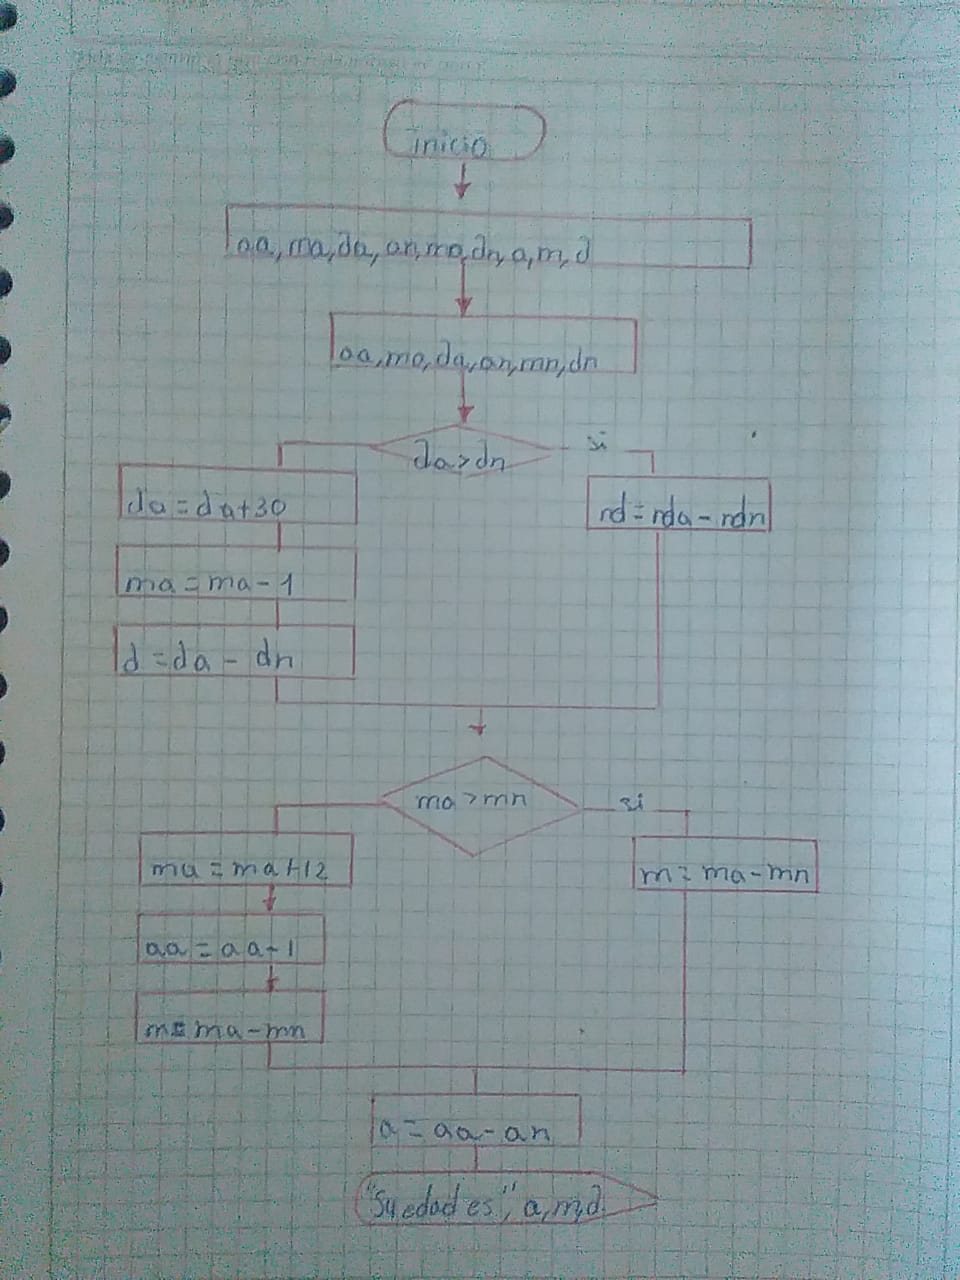 inicio
aa, ma, da, an, mo, dn, a, m, d
aa, ma, da, an, mn, dn
da>dn
si
da = da+30
nd = nda - ndn
ma = ma - 1
d = da - dn
ma >mn
si
ma = ma+12
m = ma-mn
aa = aa-1
m = ma-mn
a = aa-an
"Su edad es", a, m, d